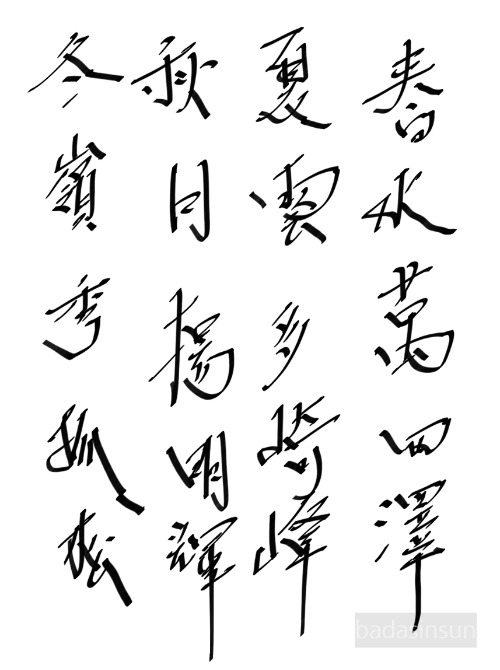 春水萬四澤
夏雲多崎峰
秋月揚明輝
冬嶺秀孤松
badasinsun